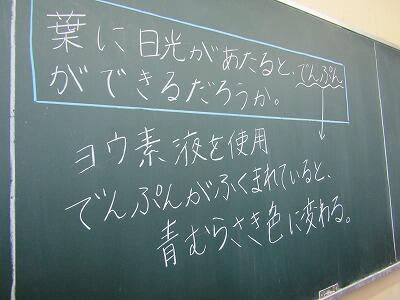 葉に日光があたると、でんぷん
ができるだろうか。
ヨウ素液を使用
でんぷんがふくまれていると、
青むらさき色に変わる。